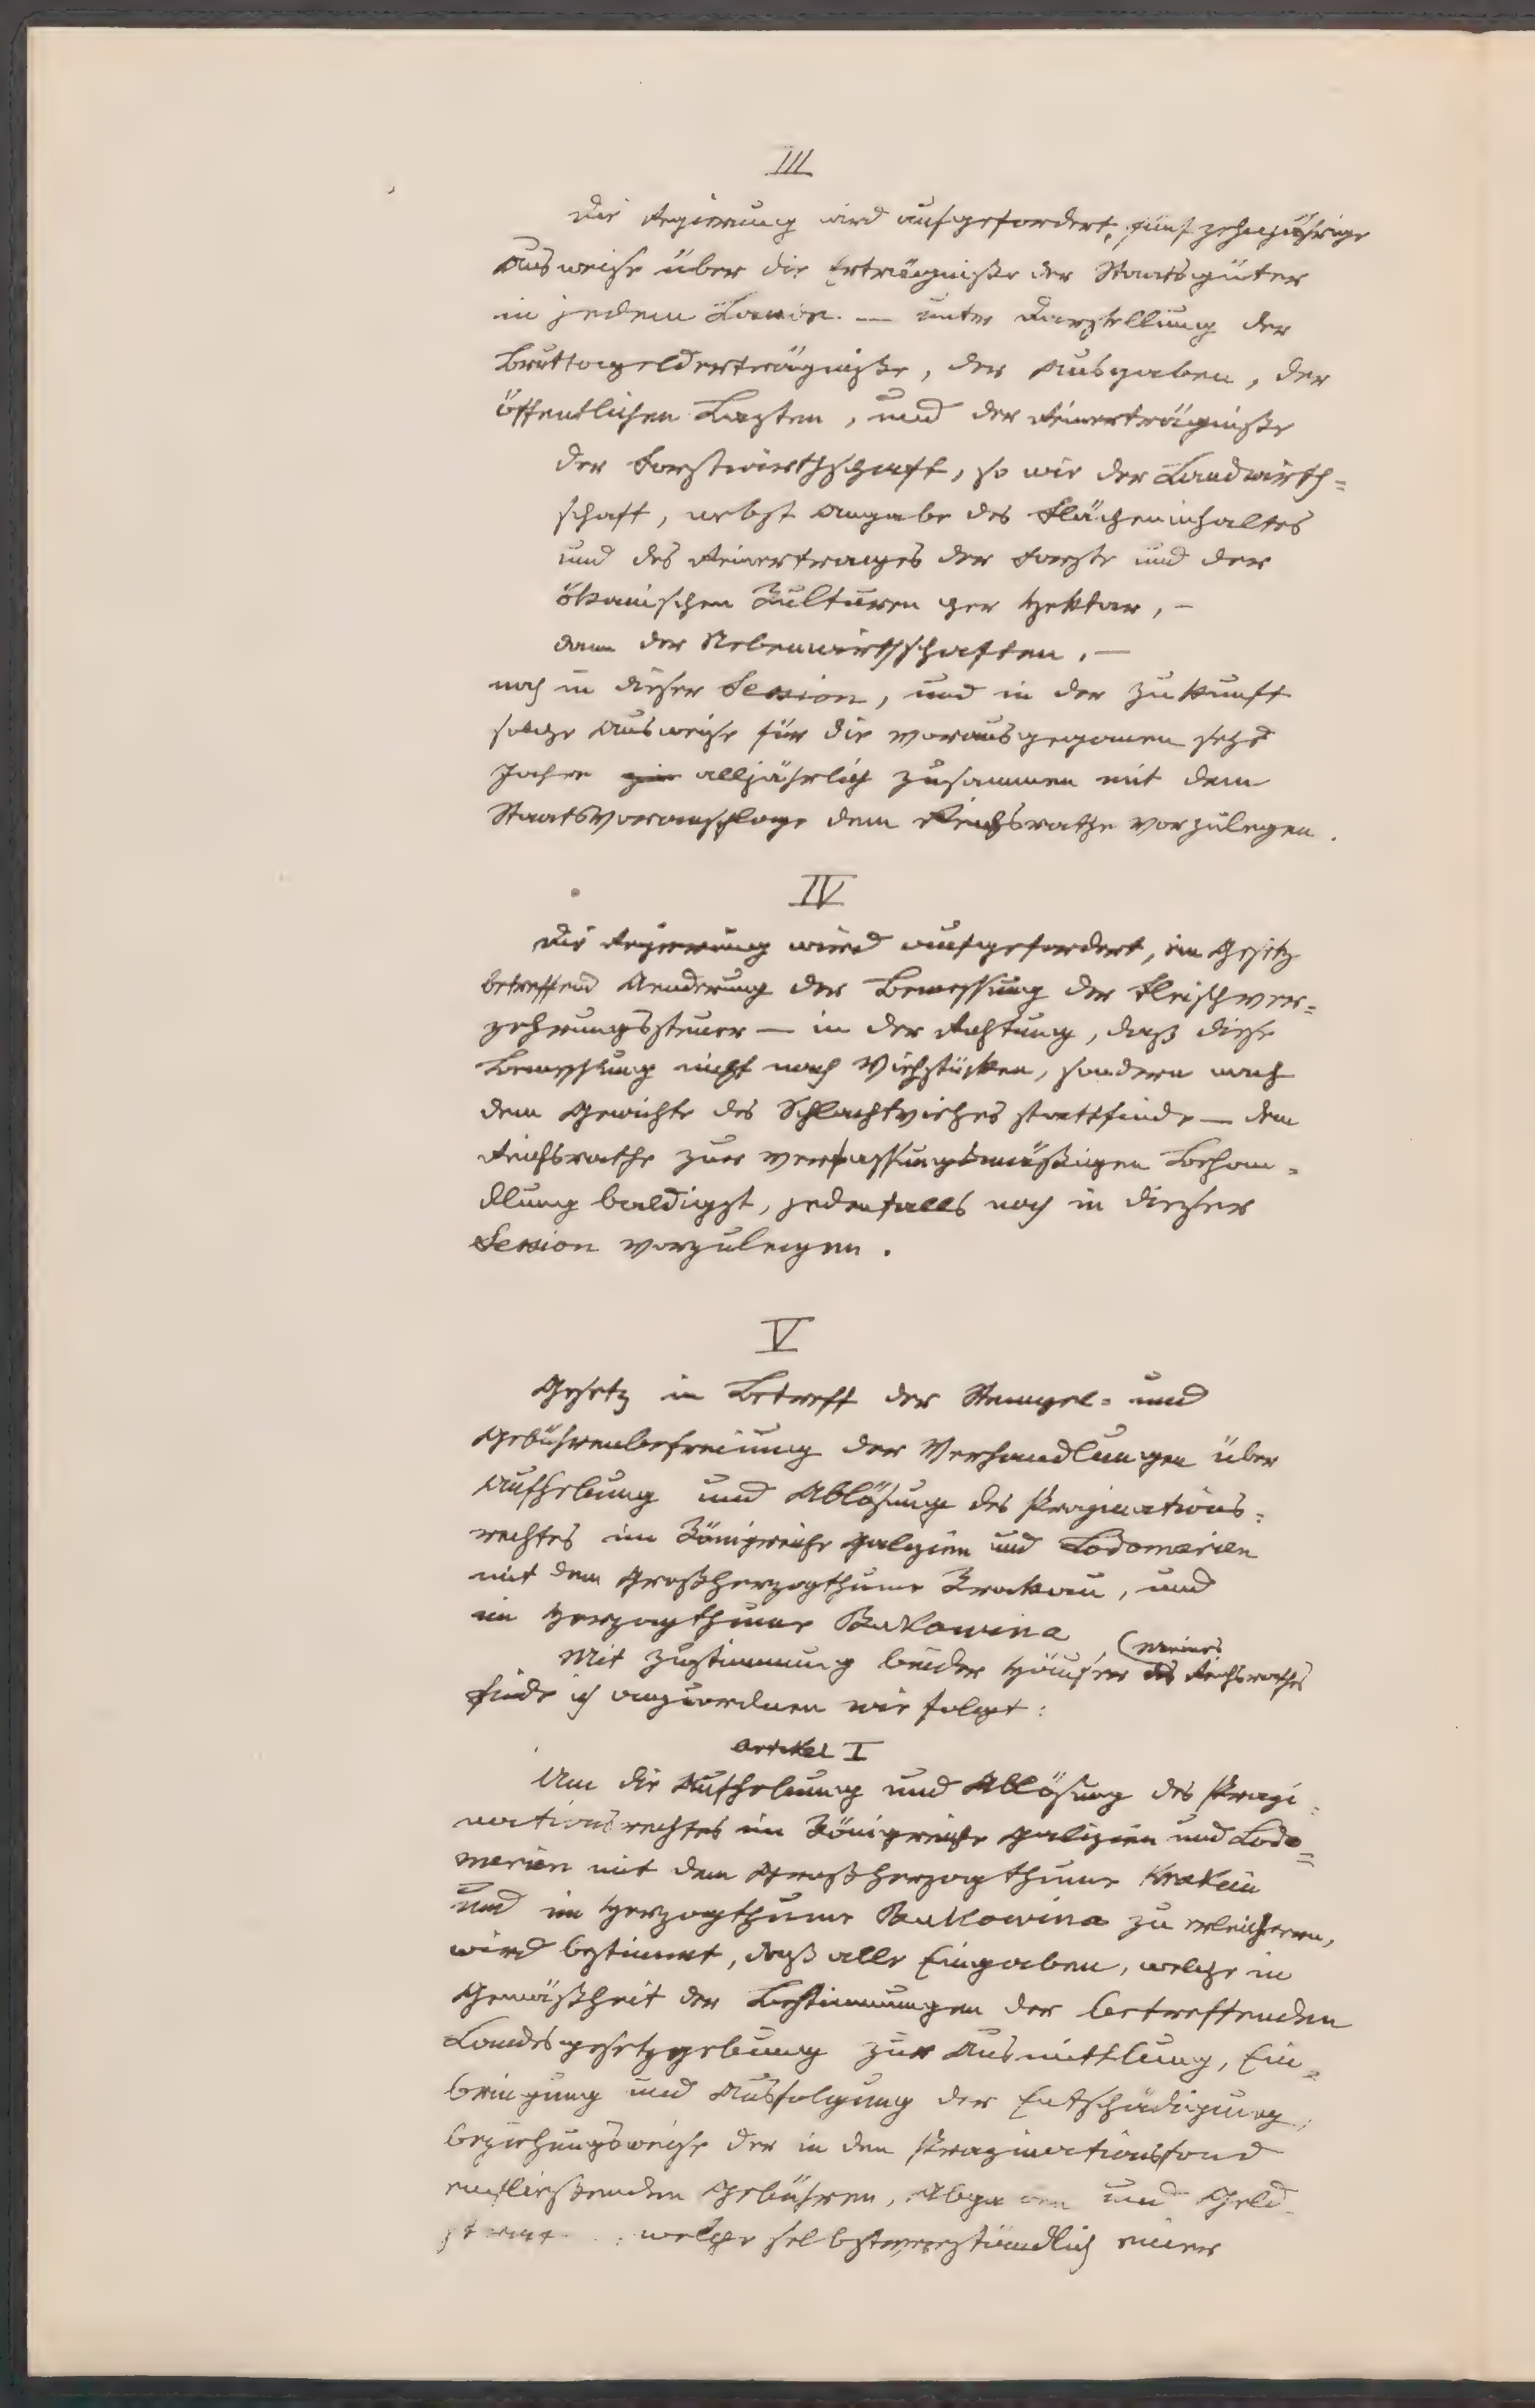 III
Die Regierung wird aufgefordert, fünfzehnjährige
Ausweise über die Erträgniße der Staatsgüter
in jedem Lande — unter Darstellung der
Bruttogelderträgniße, der Ausgaben, der
öffentlichen Lasten, und der Reinerträgniße
der Forstwirthschaft, so wie der Landwirth=
schaft, nebst Angabe des Flächeninhaltes
und des Reinertrages der Forste und der
ökonomischen Kulturen per Hektar, –
dann der Nebenwirthschaften, —
noch in dieser Session, und in der Zukunft
solche Ausweise für die vorausgegangenen sechs
Jahre alljährlich zusammen mit dem
Staatsvoranschlage dem Reichsrathe vorzulegen.
IV
Die Regierung wird aufgefordert, ein Gesetz
betreffend Aenderung der Bemessung der Fleischver=
zehrungssteuer — in der Richtung, daß diese
Bemessung nicht nach Viehstücken, sondern nach
dem Gewichte des Schlachtviehes stattfinde — dem
Reichsrathe zur verfassungsmäßigen Behan=
dlung baldigst, jedenfalls noch in dieser
Session vorzulegen.
V
Gesetz in Betreff der Stempel= und
Gebührenbefreiung der Verhandlungen über
Aufhebung und Ablösung des Propinations=
rechtes im Königreiche Galizien und Lodomerien
mit dem Großherzogthume Krakau, und
im Herzogthume Bukowina
Mit Zustimmung beider Häuser (Meines des Reichsrathes
finde ich anzuordnen wie folgt:
Artikel I
Um die Aufhebung und Ablösung des Propi=
nationsrechtes im Königreiche Galizien und Lodo=
merien mit dem Großherzogthume Krakau
und im Herzogthume Bukowina zu erleichtern,
wird bestimmt, daß alle Eingaben, welche in
Gemäßheit der Bestimmungen der betreffenden
Landesgesetzgebung zur Ausmittlung, Ein=
bringung und Ausfolgung der Entschädigung,
beziehungsweise der in den Propinationsfond
einfließenden Gebühren, und Geld
welche selbstverständlich einer